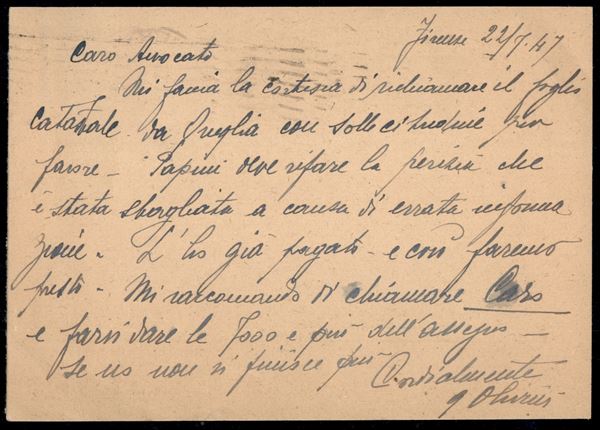 Firenze 22/7.47
Caro Avvocato
Mi faccia la cortesia di richiamare il foglio
catastale da con sollecitudine per
favore - Papini deve rifare la perizia che
è stata sbagliata a causa di errata informa
zione. L'ho già pagato e così faremo
presto. Mi raccomando di chiamare Caro
e farsi dare le 7000 e più dell'assegno -
se no non si finisce più
Cordialmente